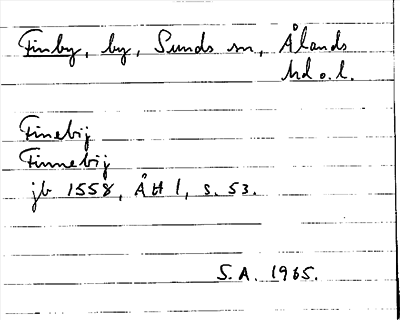 Finby, by, Sunds sn, Ålands
hd o. l.
Finebij
Finnebij
jb 1558, ÅH 1, s. 53.
S.A. 1965.